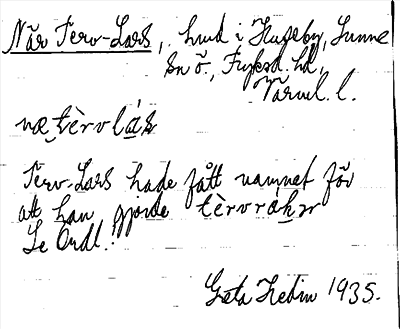 När Terv-Lars, hmd i Husby, Sunne
sn ö., Fryksd. hd,
Värml. l.
næ tèrvlás
Terv-Lars hade fått namnet för
att han gjorde tèrvrákər
Se Ordl.!
Greta Hedin 1935.